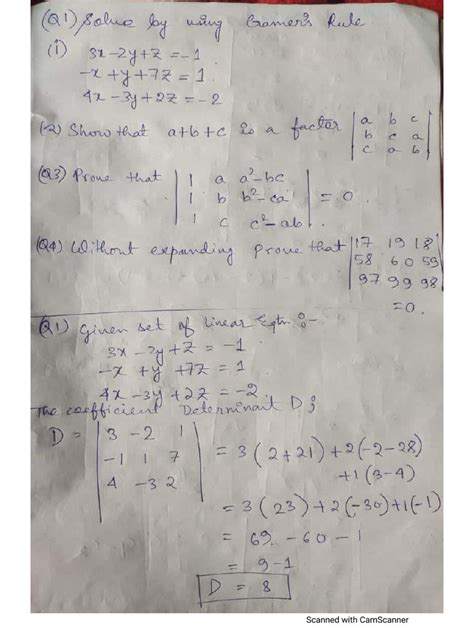 (Q1) Solve by using Cramer's Rule
(i) 3x - 2y + z = -1
-x + y + 7z = 1
4x - 3y + 2z = -2
(-2) Show that a+b+c is a factor | a b c |
| b c a |
| c a b |
(Q3) Prove that | 1 a a²-bc |
| 1 b b²-ca | = 0.
| 1 c c²-ab |
(Q4) Without expanding prove that | 17 19 18 |
| 58 60 59 |
| 97 99 98 |
= 0.
(Q1) Given set of linear Eqtn :-
3x - 2y + z = -1
-x + y + 7z = 1
4x - 3y + 2z = -2
The coefficient Determinant D ;
D = | 3 -2 1 | = 3(2+21) + 2(-2-28)
| -1 1 7 | + 1(3-4)
| 4 -3 2 | = 3(23) + 2(-30) + 1(-1)
= 69 - 60 - 1
= 9 - 1
D = 8
Scanned with CamScanner